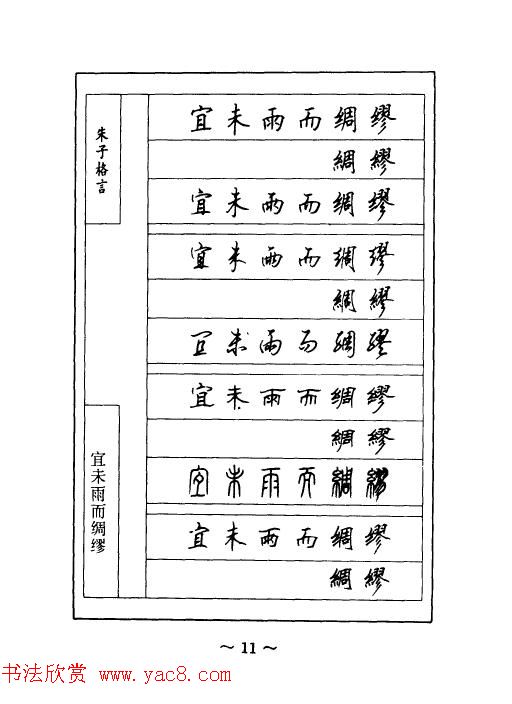 朱子格言
宜未雨而绸缪
宜未雨而绸缪
綢繆
宜未雨而绸缪
宜未雨而绸缪
綢繆
宜未雨而绸缪
宜未雨而绸缪
綢繆
宜未雨而綢繆
宜未雨而绸缪
綢繆
～ 11 ～
书法欣赏 www.yac8.com